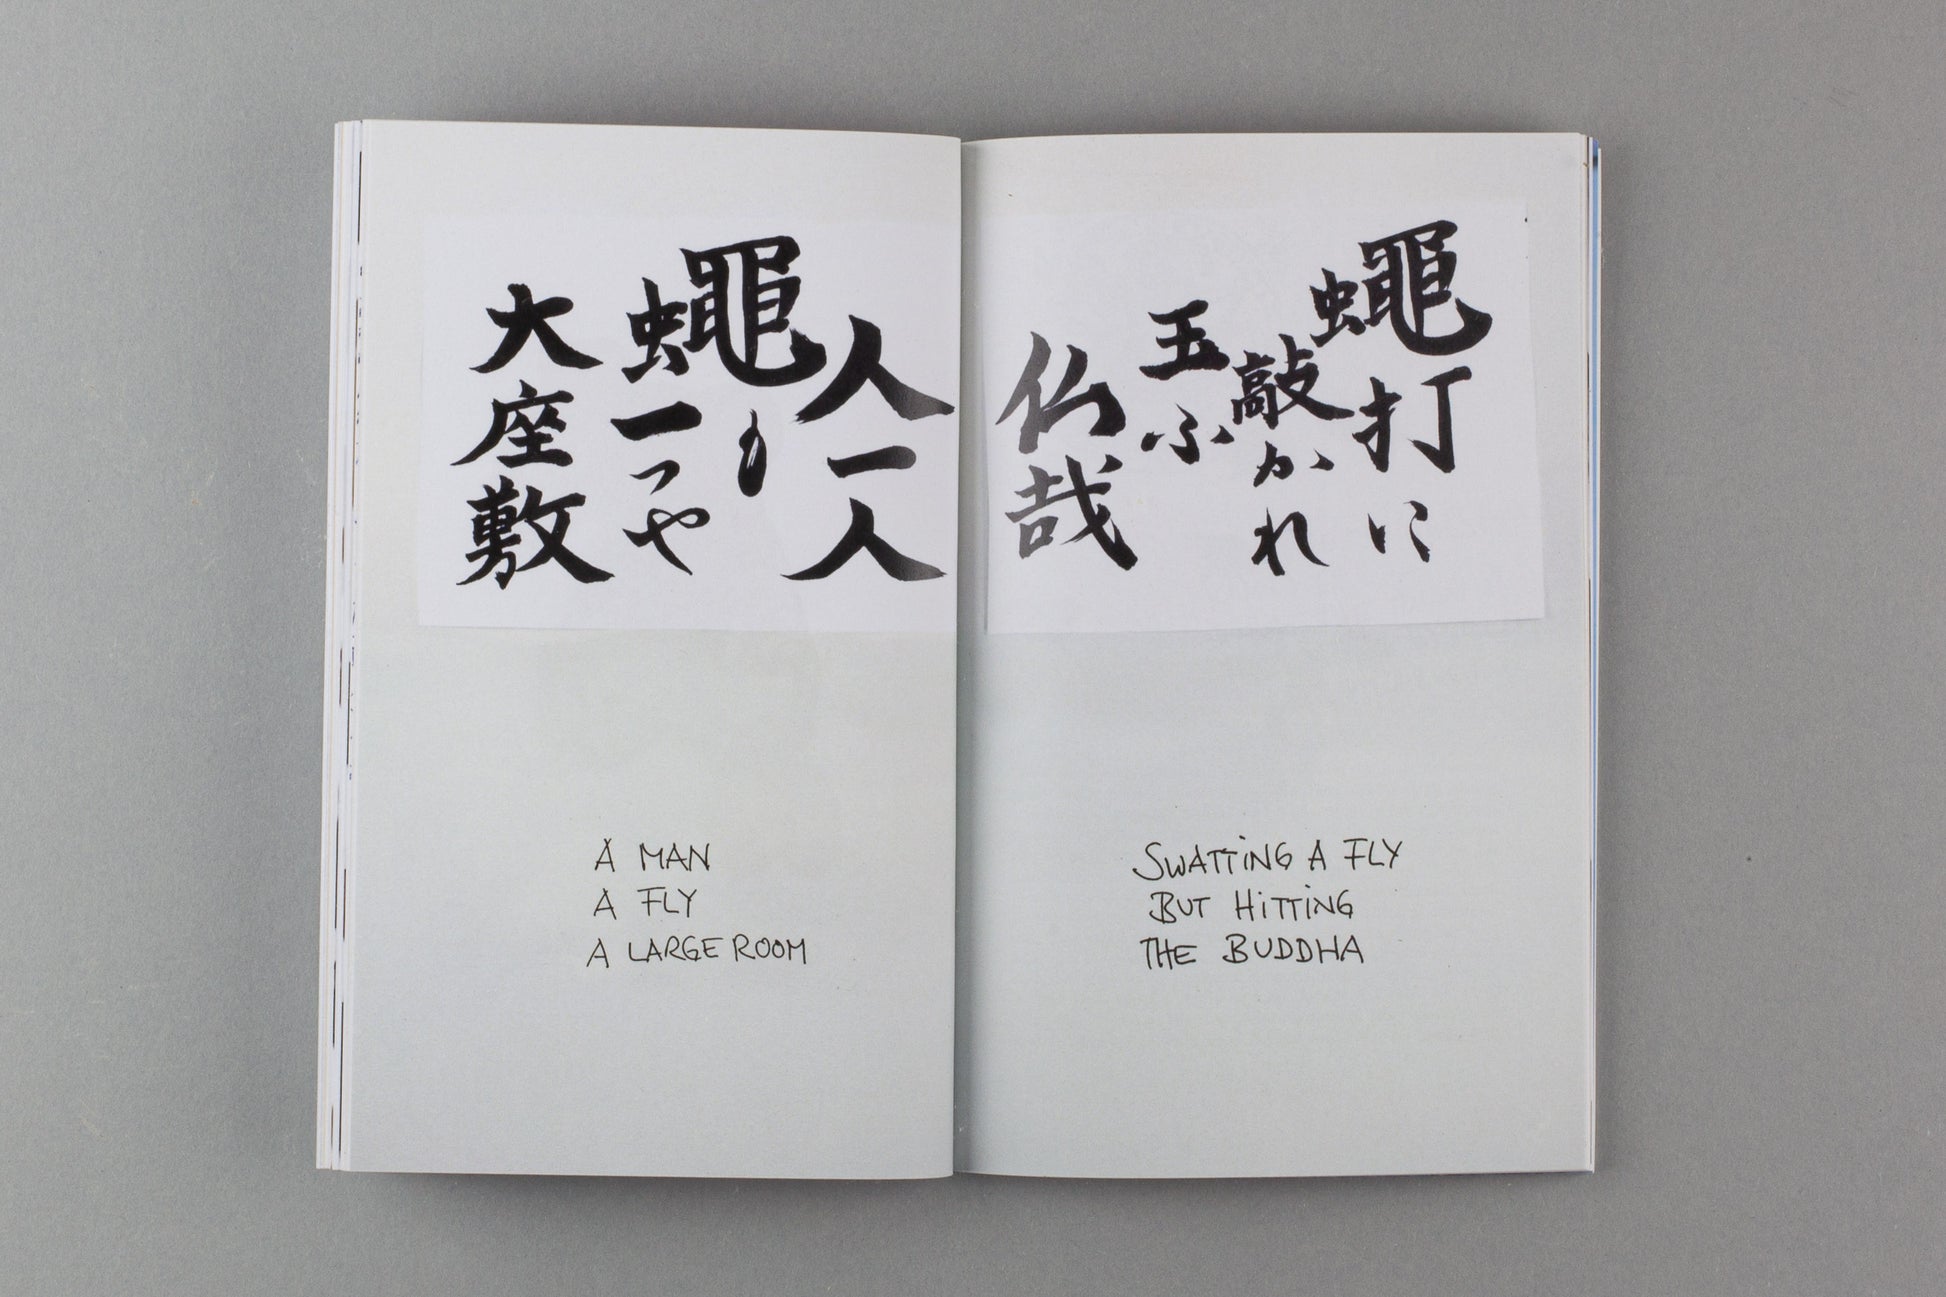 人一人
蠅も
一つや
大座敷
A MAN
A FLY
A LARGE ROOM
蠅打に
敲かれ
玉ふ
仏哉
SWATTING A FLY
BUT HITTING
THE BUDDHA